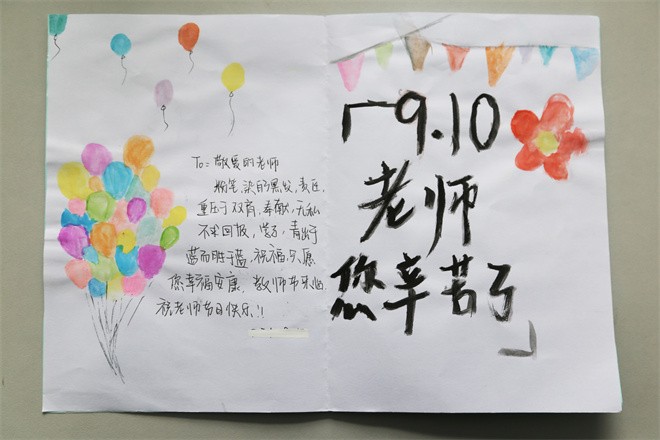 To: 敬爱的老师
粉笔,染的黑发,责任,
重压于双肩,奉献,无私
不求回报,情了,青出于
蓝而胜于蓝,祝福,只愿
您幸福安康,教师节乐
祝老师节日快乐!!
「9.10
老师
您辛苦了
」